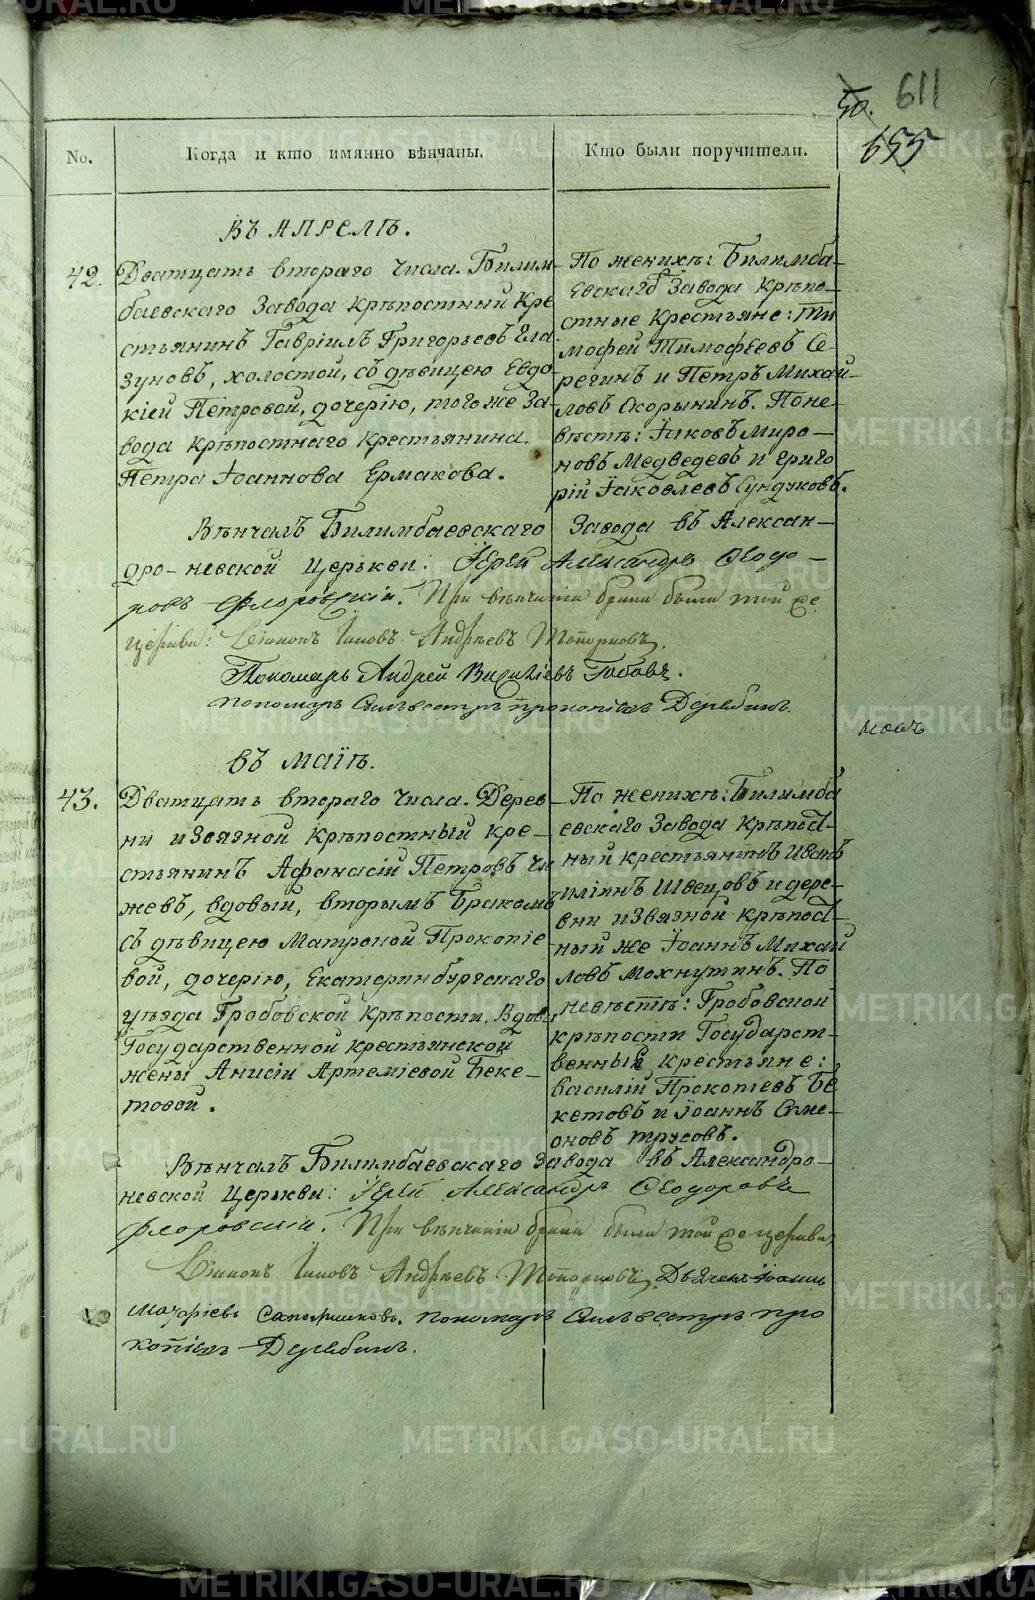 50. 611
655
No. Когда и кто имянно вѣнчаны. Кто были поручители.
ВЪ АПРЕЛѢ.
42. Дватцать втораго числа. Билим-
баевскаго Завода крѣпостный Кре
стьянинъ Гавріилъ Григорьевъ Гла
зуновъ, холостой, съ дѣвицею Евдо
кіей Петровой, дочерію, того же За-
вода крѣпостнаго крестьянина
Петра Іоаннова Ермакова.
По женихѣ: Билимба-
евскаго Завода крѣпо-
стные крестьяне: Ти
мофей Тимофеевъ Се-
регинъ и Петръ Михай-
ловъ Скорынинъ. Поне-
вѣстѣ: Іаковъ Миро-
новъ Медведевъ и Григо
рій Іаковлевъ Сундуковъ.
Вѣнчалъ Билимбаевскаго Завода въ Алексан-
дро-невской Церькви: Іерей Александръ Ѳеодо-
ровъ Флоровскій. При вѣнчаніи брака были той же
церкви: Діаконъ Іаковъ Андреевъ Топорковъ,
Пономарь Андрей Васильевъ Гобовъ.
пономарь Сильвестръ прокопіевъ Дерябинъ.
ковъ
ВЪ МАІѢ.
43. Дватцать втораго числа. Дерев-
ни извязной крѣпостный кре-
стьянинъ Афанасій Петровъ Чи
жевъ, вдовый, вторымъ бракомъ
съ дѣвицею Матроной Прокопіе
вой, дочерію, Екатеринбургскаго
уѣзда Гробовской крѣпости, вдовы
Государственной крестьянской
жены Анисіи Артеміевой Беке-
товой.
По женихѣ: Билимба
евскаго Завода крѣпост-
ный крестьянинъ Иванъ
Иліинъ Швецовъ и дере-
вни извязной крѣпост-
ный же Іоаннъ Михай
ловъ Мохнуткинъ. По
невѣстѣ: Гробовской
крѣпости Государст-
венный крестьяне:
Василій Прокопіевъ Бе
кетовъ и Іоаннъ Симе-
оновъ трусовъ.
Вѣнчалъ Билимбаевскаго Завода въ Александро-
невской Церькви: Іерей Александръ Ѳеодоровъ
Флоровскій. При вѣнчаніи брака были той же церкви
Діаконъ Іаковъ Андреевъ Топорковъ, Дьячекъ Іоаннъ
Сапожниковъ. пономарь Сильвестръ про
копіевъ Дерябинъ.